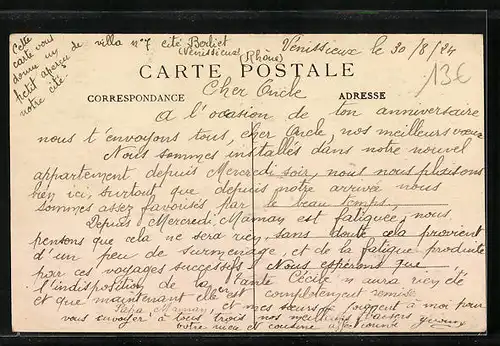 Cette
carte vous
donne un
petit aperçu de
notre cité
villa n°7 cité Berliet
(Vénissieux) (Rhône)
Vénissieux le 30/8/24
13€
CARTE POSTALE
CORRESPONDANCE
ADRESSE
Cher Oncle
A l'ocasion de ton anniversaire
nous t'envoyons tous, cher Oncle, nos meilleurs vœux
Nous sommes installés dans notre nouvel
appartement depuis Mercredi soir, nous nous plaisons
bien ici, surtout que depuis notre arrivée nous
sommes assez favorisés par le beau temps,
Depuis Mercredi Maman est fatiguée, nous
pensons que cela ne sera rien, sans doute cela provient
d'un peu de surmenage, et de la fatigue produite
par ces voyages successifs. Nous espérons que
l'indisposition de la Tante Cécile n'aura rien été
et que maintenant elle est complètement remise
Papa, Maman, et mes sœurs se joignent à moi pour
vous envoyer à tous trois nos meilleurs baisers
votre nièce et cousine affectionnée